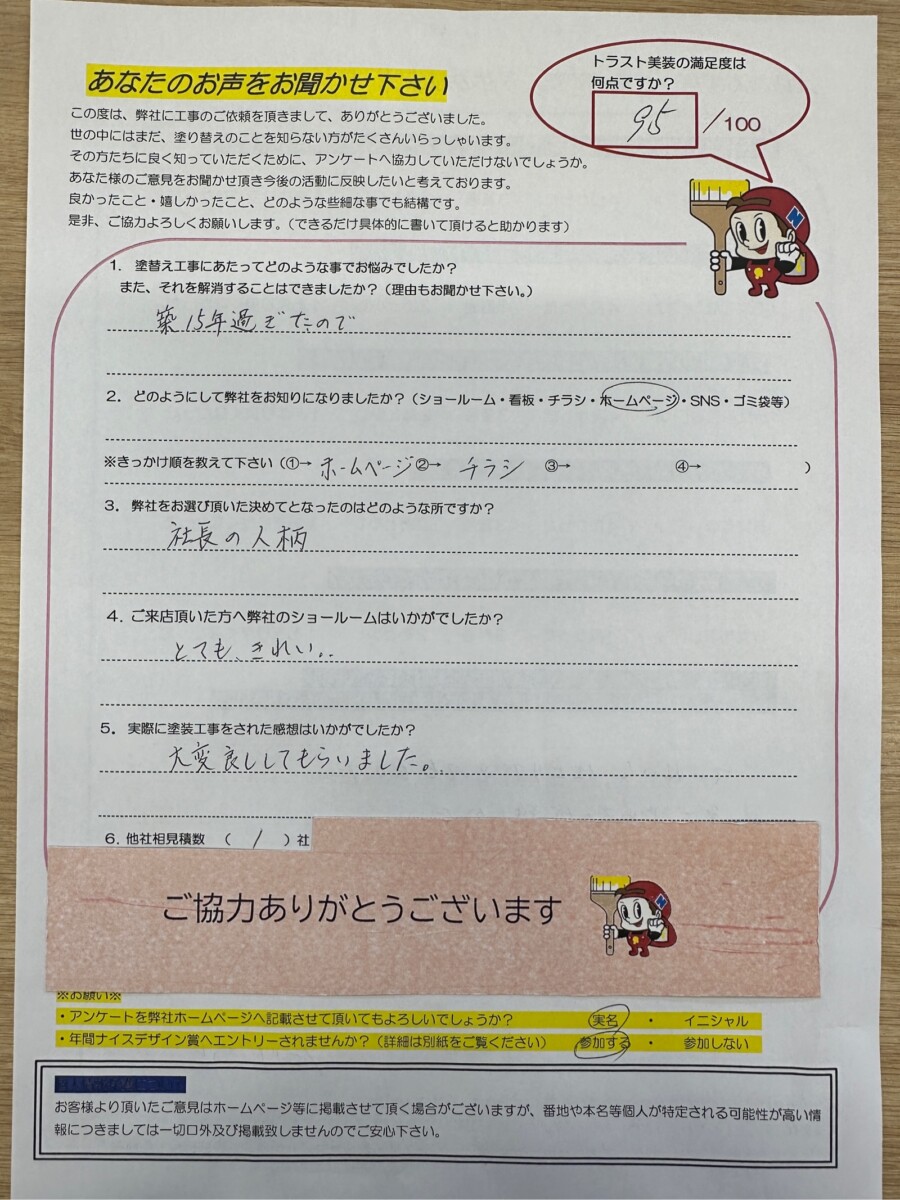 あなたのお声をお聞かせ下さい
トラスト美装の満足度は
何点ですか？
95 /100
この度は、弊社に工事のご依頼を頂きまして、ありがとうございました。
世の中にはまだ、塗り替えのことを知らない方がたくさんいらっしゃいます。
その方たちに良く知っていただくために、アンケートへ協力していただけないでしょうか。
あなた様のご意見をお聞かせ頂き今後の活動に反映したいと考えております。
良かったこと・嬉しかったこと、どのような些細な事でも結構です。
是非、ご協力よろしくお願いします。（できるだけ具体的に書いて頂けると助かります）
1. 塗替え工事にあたってどのような事でお悩みでしたか？
また、それを解消することはできましたか？（理由もお聞かせ下さい。）
築15年過ぎたので
2. どのようにして弊社をお知りになりましたか？（ショールーム・看板・チラシ・ホームページ・SNS・ゴミ袋等）
※きっかけ順を教えて下さい（①→ ホームページ ②→ チラシ ③→ ④→ ）
3. 弊社をお選び頂いた決めてとなったのはどのような所ですか？
社長の人柄
4. ご来店頂いた方へ弊社のショールームはいかがでしたか？
とても、きれい..
5. 実際に塗装工事をされた感想はいかがでしたか？
大変良ししてもらいました。
6. 他社相見積数 （ 1 ）社
ご協力ありがとうございます
※お願い※
・アンケートを弊社ホームページへ記載させて頂いてもよろしいでしょうか？ 実名 ・ イニシャル
・年間ナイスデザイン賞へエントリーされませんか？（詳細は別紙をご覧ください） 参加する ・ 参加しない
お客様より頂いたご意見はホームページ等に掲載させて頂く場合がございますが、番地や本名等個人が特定される可能性が高い情
報につきましては一切口外及び掲載致しませんのでご安心下さい。